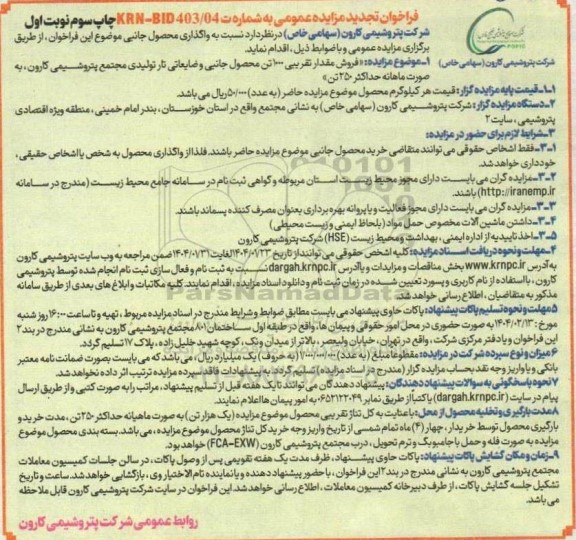 فراخوان تجدید مزایده عمومی به شماره ت KRN-BID 403/04 چاپ سوم نوبت اول
شرکت پتروشیمی کارون (سهامی خاص) در نظر دارد نسبت به واگذاری محصول جانبی موضوع این فراخوان، از طریق
برگزاری مزایده عمومی و با ضوابط ذیل، اقدام نماید.
شرکت پتروشیمی کارون (سهامی خاص)
۱- موضوع مزایده: «فروش مقدار تقریبی ۱۰۰۰ تن محصول جانبی و ضایعاتی تار تولیدی مجتمع پتروشیمی کارون، به
صورت ماهانه حداکثر ۲۵۰ تن»
۱-۱- قیمت پایه مزایده گزار: قیمت هر کیلوگرم محصول موضوع مزایده حاضر (به عدد) ۵۰/۰۰۰ ریال می باشد.
۲- دستگاه مزایده گزار: شرکت پتروشیمی کارون (سهامی خاص) به نشانی مجتمع واقع در استان خوزستان، بندر امام خمینی، منطقه ویژه اقتصادی
پتروشیمی، سایت ۲
۳- شرایط لازم برای حضور در مزایده:
۳-۱- فقط اشخاص حقوقی می توانند متقاضی خرید محصول جانبی موضوع مزایده حاضر باشند. فلذا از واگذاری محصول به شخص یا اشخاص حقیقی،
خودداری خواهد شد.
۳-۲- مزایده گران می بایست دارای مجوز محیط زیست استان مربوطه و گواهی ثبت نام در سامانه جامع محیط زیست (مندرج در سامانه
http://iranemp.ir) باشند.
۳-۳- مزایده گران می بایست دارای مجوز فعالیت و یا پروانه بهره برداری بعنوان مصرف کننده پسماند باشند.
۳-۴- داشتن ماشین آلات مخصوص حمل مواد (بلحاظ ایمنی و زیست محیطی)
۳-۵- اخذ تاییدیه از اداره ایمنی، بهداشت و محیط زیست (HSE) شرکت پتروشیمی کارون
۴- مهلت و نحوه دریافت اسناد مزایده: کلیه اشخاص حقوقی می توانند از تاریخ ۱۴۰۴/۰۱/۲۳ لغایت ۱۴۰۴/۰۱/۳۱ ضمن مراجعه به وب سایت پتروشیمی کارون
به آدرس www.krnpc.ir بخش مناقصات و مزایدات و یا آدرس dargah.krnpc.ir نسبت به ثبت نام و فعال سازی ثبت نام انجام شده توسط پتروشیمی
کارون، با استفاده از نام کاربری و پسورد تعیین شده در زمان ثبت نام و دانلود اسناد مزایده، اقدام نمایند. کلیه مکاتبات و ابلاغ های بعدی از طریق سامانه
مذکور به متقاضیان، اطلاع رسانی خواهد شد.
۵- مهلت و نحوه تسلیم پاکات پیشنهاد: پاکات حاوی پیشنهاد می بایست مطابق ضوابط و شرایط مندرج در اسناد مزایده مربوط، تهیه و تا ساعت ۱۶:۰۰ روز شنبه
مورخ ۱۴۰۴/۰۲/۱۳ به صورت حضوری در محل امور حقوقی و پیمان ها، واقع در طبقه اول ساختمان ۸۰۱ مجتمع پتروشیمی کارون به نشانی مندرج در بند ۲
این فراخوان و یا دفتر مرکزی شرکت، واقع در تهران، خیابان ولیعصر، بالاتر از میدان ونک، کوچه شهید خلیل زاده، پلاک ۱۷ تسلیم گردد.
۶- میزان و نوع سپرده شرکت در مزایده: مقطوعا مبلغ (به عدد) ۱/۰۰۰/۰۰۰/۰۰۰ (به حروف) یک میلیارد ریال، می باشد که می بایست بصورت ضمانت نامه معتبر
بانکی و یا واریز وجه نقد بحساب مزایده گزار (مندرج در اسناد مزایده) تسلیم گردد. به پیشنهادات فاقد سپرده مزایده ترتیب اثر داده نخواهد شد.
۷- نحوه پاسخگوئی به سوالات پیشنهاد دهندگان: پیشنهاد دهندگان می توانند تا یک هفته قبل از تسلیم پیشنهاد، مراتب را به صورت کتبی و از طریق ارسال
پیام در سایت (dargah.krnpc.ir) یا کتبا از طریق نمابر ۰۶۵۲۱۲۲۰۴۹ به امور پیمان ها اعلام نمایند.
۸- مدت بارگیری و تخلیه محصول از محل: با عنایت به کل تناژ تقریبی محصول موضوع مزایده (یک هزار تن) به صورت ماهیانه حداکثر ۲۵۰ تن، مدت خرید و
بارگیری محصول توسط خریدار، چهار (۴) ماه تمام شمسی از تاریخ واریز وجه خرید کل تناژ محصول موضوع مزایده، می باشد. بسته بندی محصول موضوع
مزایده به صورت فله و حمل با جامبوبگ و ترم تحویل، درب مجتمع پتروشیمی کارون (FCA-EXW) خواهد بود.
۹- زمان و مکان گشایش پاکات پیشنهاد: پاکات حاوی پیشنهاد، ظرف مدت یک هفته تقویمی پس از وصول پاکات، در سالن جلسات کمیسیون معاملات
مجتمع پتروشیمی کارون به نشانی مندرج در بند ۲ این فراخوان، با حضور پیشنهاد دهنده و یا نماینده تام الاختیار وی، بازگشایی خواهد شد. ساعت و تاریخ
تشکیل جلسه گشایش پاکات، از طرف دبیرخانه کمیسیون معاملات، اطلاع رسانی خواهد شد. این فراخوان در سایت شرکت پتروشیمی کارون قابل ملاحظه
می باشد.
روابط عمومی شرکت پتروشیمی کارون